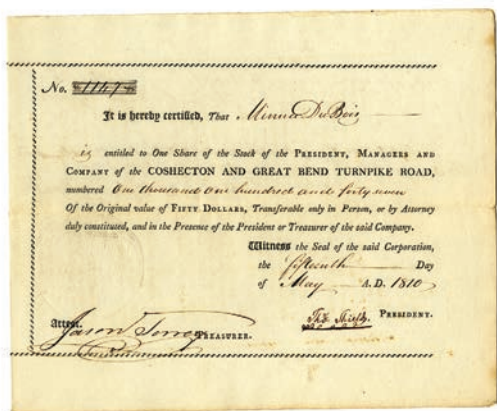 No. 1147
It is hereby certified, That Minna Du Bois
is entitled to One Share of the Stock of the PRESIDENT, MANAGERS AND
COMPANY of the COSHECTON AND GREAT BEND TURNPIKE ROAD,
numbered One thousand one hundred and forty seven
Of the Original value of FIFTY DOLLARS, Transferable only in Person, or by Attorney
duly constituted, and in the Presence of the President or Treasurer of the said Company.
Witness the Seal of the said Corporation,
the fifteenth Day
of May A. D. 1810
Attest.
Jason Torrey TREASURER.
PRESIDENT.